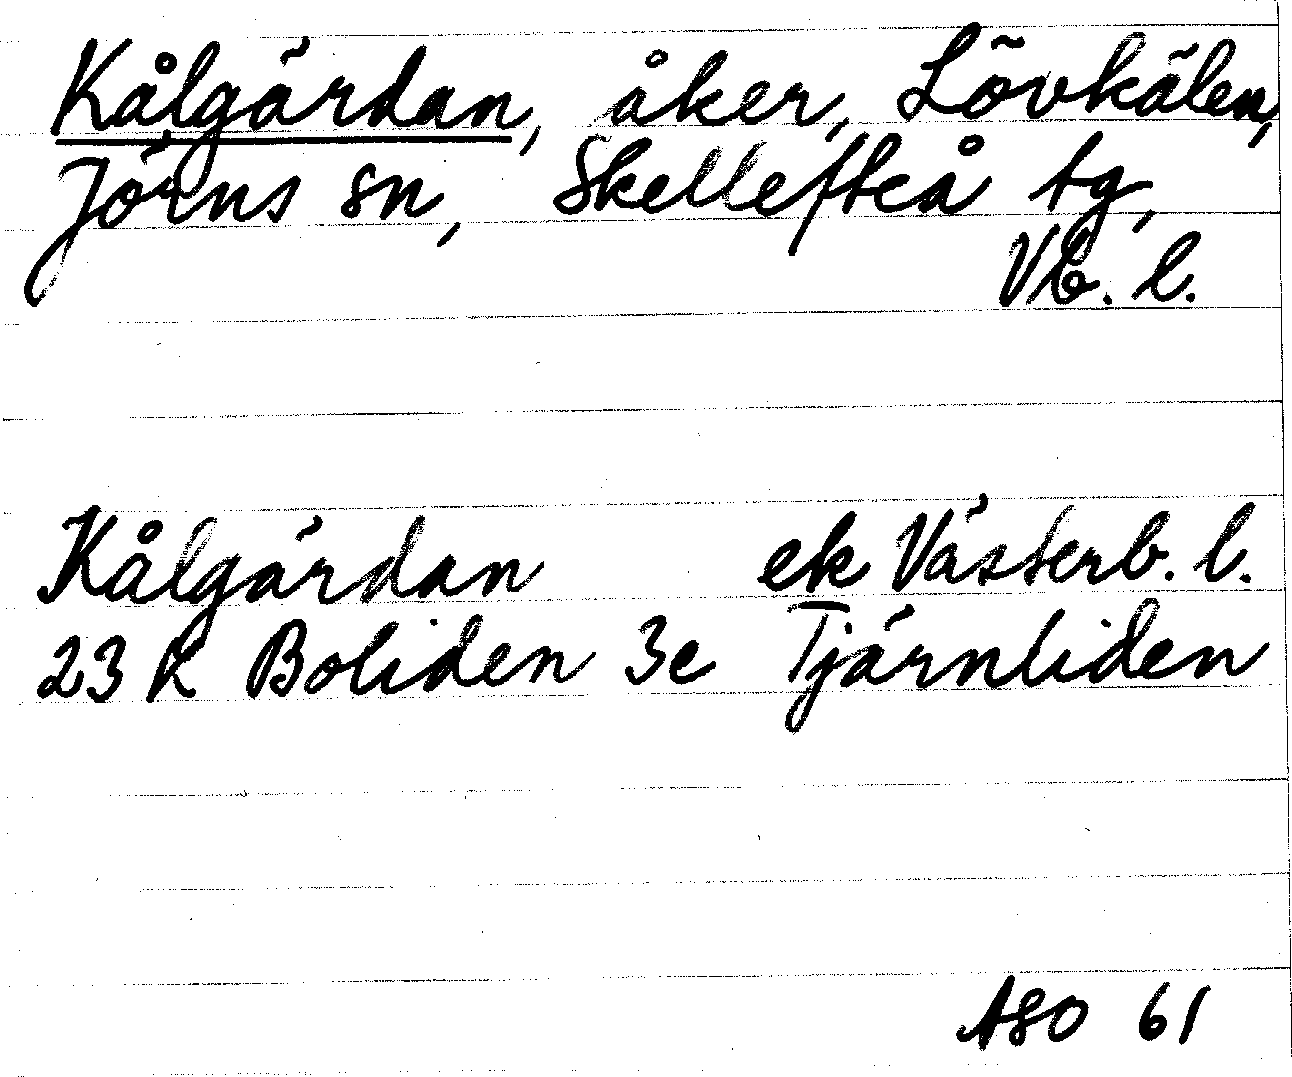 Kålgärdan, åker, Lövkälen,
Jörns sn, Skellefteå tg,
Vb. l.
Kålgärdan ek Västerb. l.
23 K Boliden 3e Tjärnliden
ASO 61